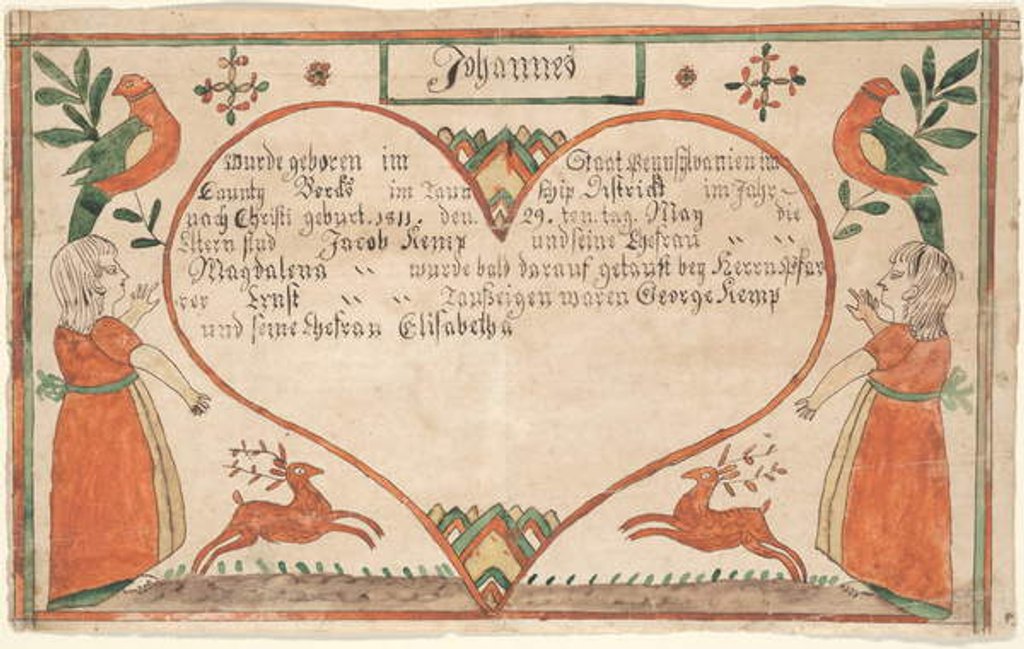 Johannes
wurde geboren im Staat Pennsylvanien im
Caunty Bercks im Taun ship Districkt im Jahr
nach Christi geburt. 1811. den. 29. ten. tag. May die
Eltern sind Jacob Kemp und seine Ehefrau " "
Magdalena " " wurde bald darauf getauft bey Herrn Pfar
rer Ernst " " Taufzeigen waren George Kemp
und seine Ehefrau Elisabetha